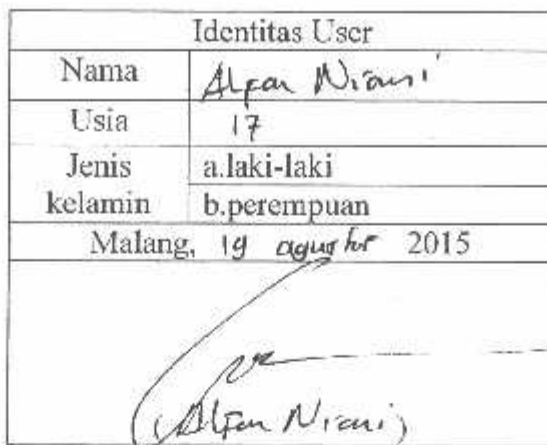 Identitas User
Nama Alfan Niami
Usia 17
Jenis kelamin
a.laki-laki
b.perempuan
Malang, 19 agustus 2015
(Alfan Niami)